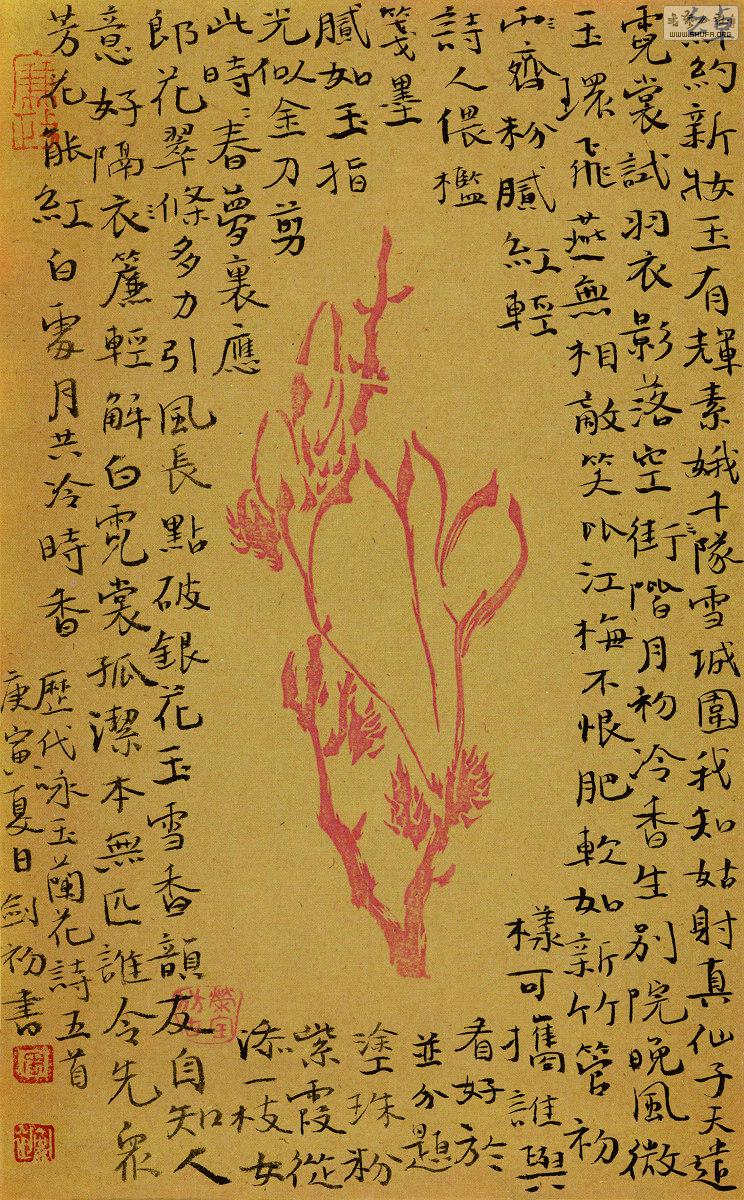 約新妝玉有輝素娥千隊雪城圍我知姑射真仙子天遣
霓裳試羽衣影落空街階月初冷香生別院晚風微
玉環飛燕無相敵笑比江梅不恨肥軟如新竹管初
齊粉膩紅輕樣可攜誰與
詩人偎檻看好於
箋墨並分題
膩如玉指塗珠粉
光似金刀剪紫霞從
此時時春夢裏應添一枝女
郎花翠條多力引風長點破銀花玉雪香韻友自知人
意好隔衣簾輕解白霓裳孤潔本無匹誰令先眾
芳花能紅白處月共冷時香歷代咏玉蘭花詩五首
庚寅夏日劍初書
WWW.SHUFA.ORG